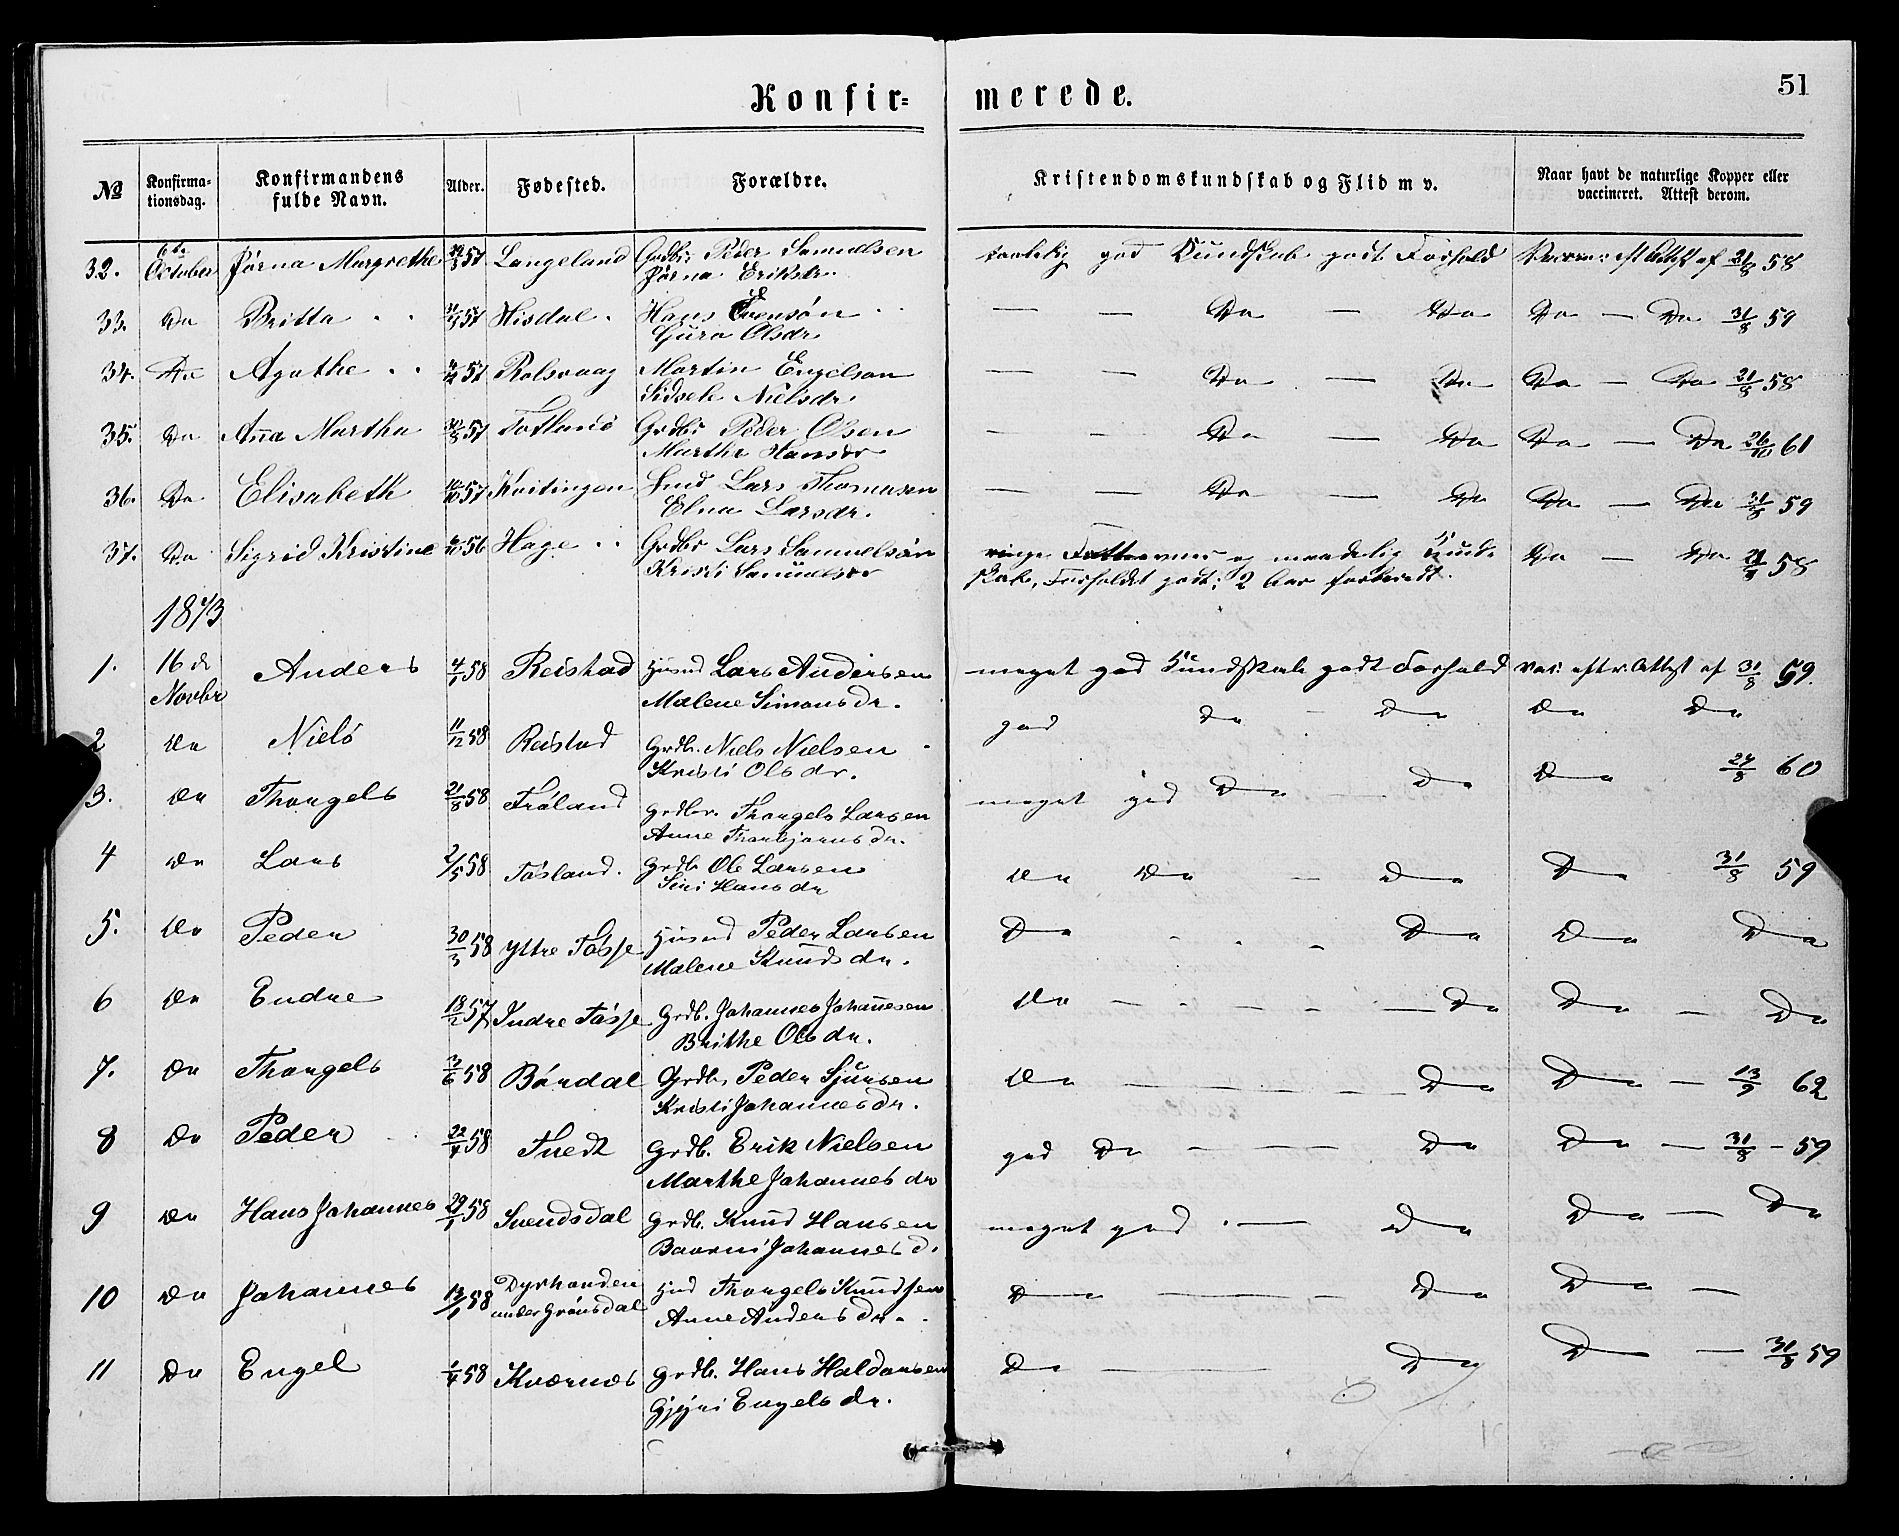 51
Konfir= merede.
№ Konfirma-tionsdag. Konfirmandens fulde Navn. Alder. Fødested. Forældre. Kristendomskundskab og Flid m v. Naar havt de naturlige Kopper eller vaccineret. Attest derom.
32. 6te October Jørna Margrethe 57 Langeland Grdbr Peder Samuelsen god Kundskab godt Forhold Attest af 21/8 58
Jørna Eriksdr.
33. Do Britta 57 Hisdal. Hans Svensøn — — Do — Do Do — Do 31/8 59
Guro Olsdr
34. Do Agathe 57 Rolsvaag Martin Engelsøn — — Do — Do Do — Do 21/8 58
Sidsele Nielsdr.
35. Do Anna Martha 30/8 57 Totland Grdbr Peder Olsen — — Do — Do Do — Do 26/10 61
Marthe Hansdr
36. Do Elisabeth 57 Kvitingen Hmd Lars Thomasen — — Do — Do Do — Do 31/8 59
Elna Larsdr.
37. Do Sigrid Kristine 56 Hage Grdbr Lars Samuelsøn ringe Fatteevne og maadelig Kund- Do — Do 58
Kristi Samuelsdr skab, Forholdet godt; 2 Aar forberedt.
1873
1. 16 de Anders 4/1 58 Reistad Husmd Lars Andersen meget god Kundskab godt Forhold vac. efter Attest af 31/8 59.
Novbr Malene Simonsdr.
2 Do Niels 11/12 58 Reistad Grdb. Niels Nielsen god Do — Do Do Do
Kristi Olsdr.
3. Do Thorgels 21/8 58 Frøland Grdbr. Thorgels Larsen meget god Do — Do Do 24/8 60
Anne Thorbjørnsdr.
4 Do Lars 2/5 58 Tøsland. Grdb Ole Larsen Do Do — Do Do 31/8 59
Siri Hansdr
5. Do Peder 30/3 58 Yttre Tøsse Husmd Peder Larsen Do Do Do Do
Malene Knudsdr.
6 Do Endre 18/12 57 Indre Tøsse Grdb. Johannes Johannesen Do — — — — Do Do — Do
Brithe Olsdr.
7. Do Thorgels 3/6 58 Børdal Grdb. Peder Sjursen Do — — — — Do Do — 13/9 62
Kristi Johannesdr.
8 Do Peder 58 Tuedt Grdb. Erik Nielsen god Do — — — Do Do — 31/8 — 59
Marthe Johannesdr
9 Do Hans Johannes 29/1 58 Svendsdal Grdb. Knud Hansen meget god — Do Do — Do
Johannesd.
10 Do Johannes 13/1 58 Hmd Thorgels Knudsen Do — — — Do Do —
under Grønsdal Anne Andersdr.
11 Do Engel 58 Kværnes Grdb. Hans Haldorsen Do — — Do Do — 31/8 59
Engelsdr.